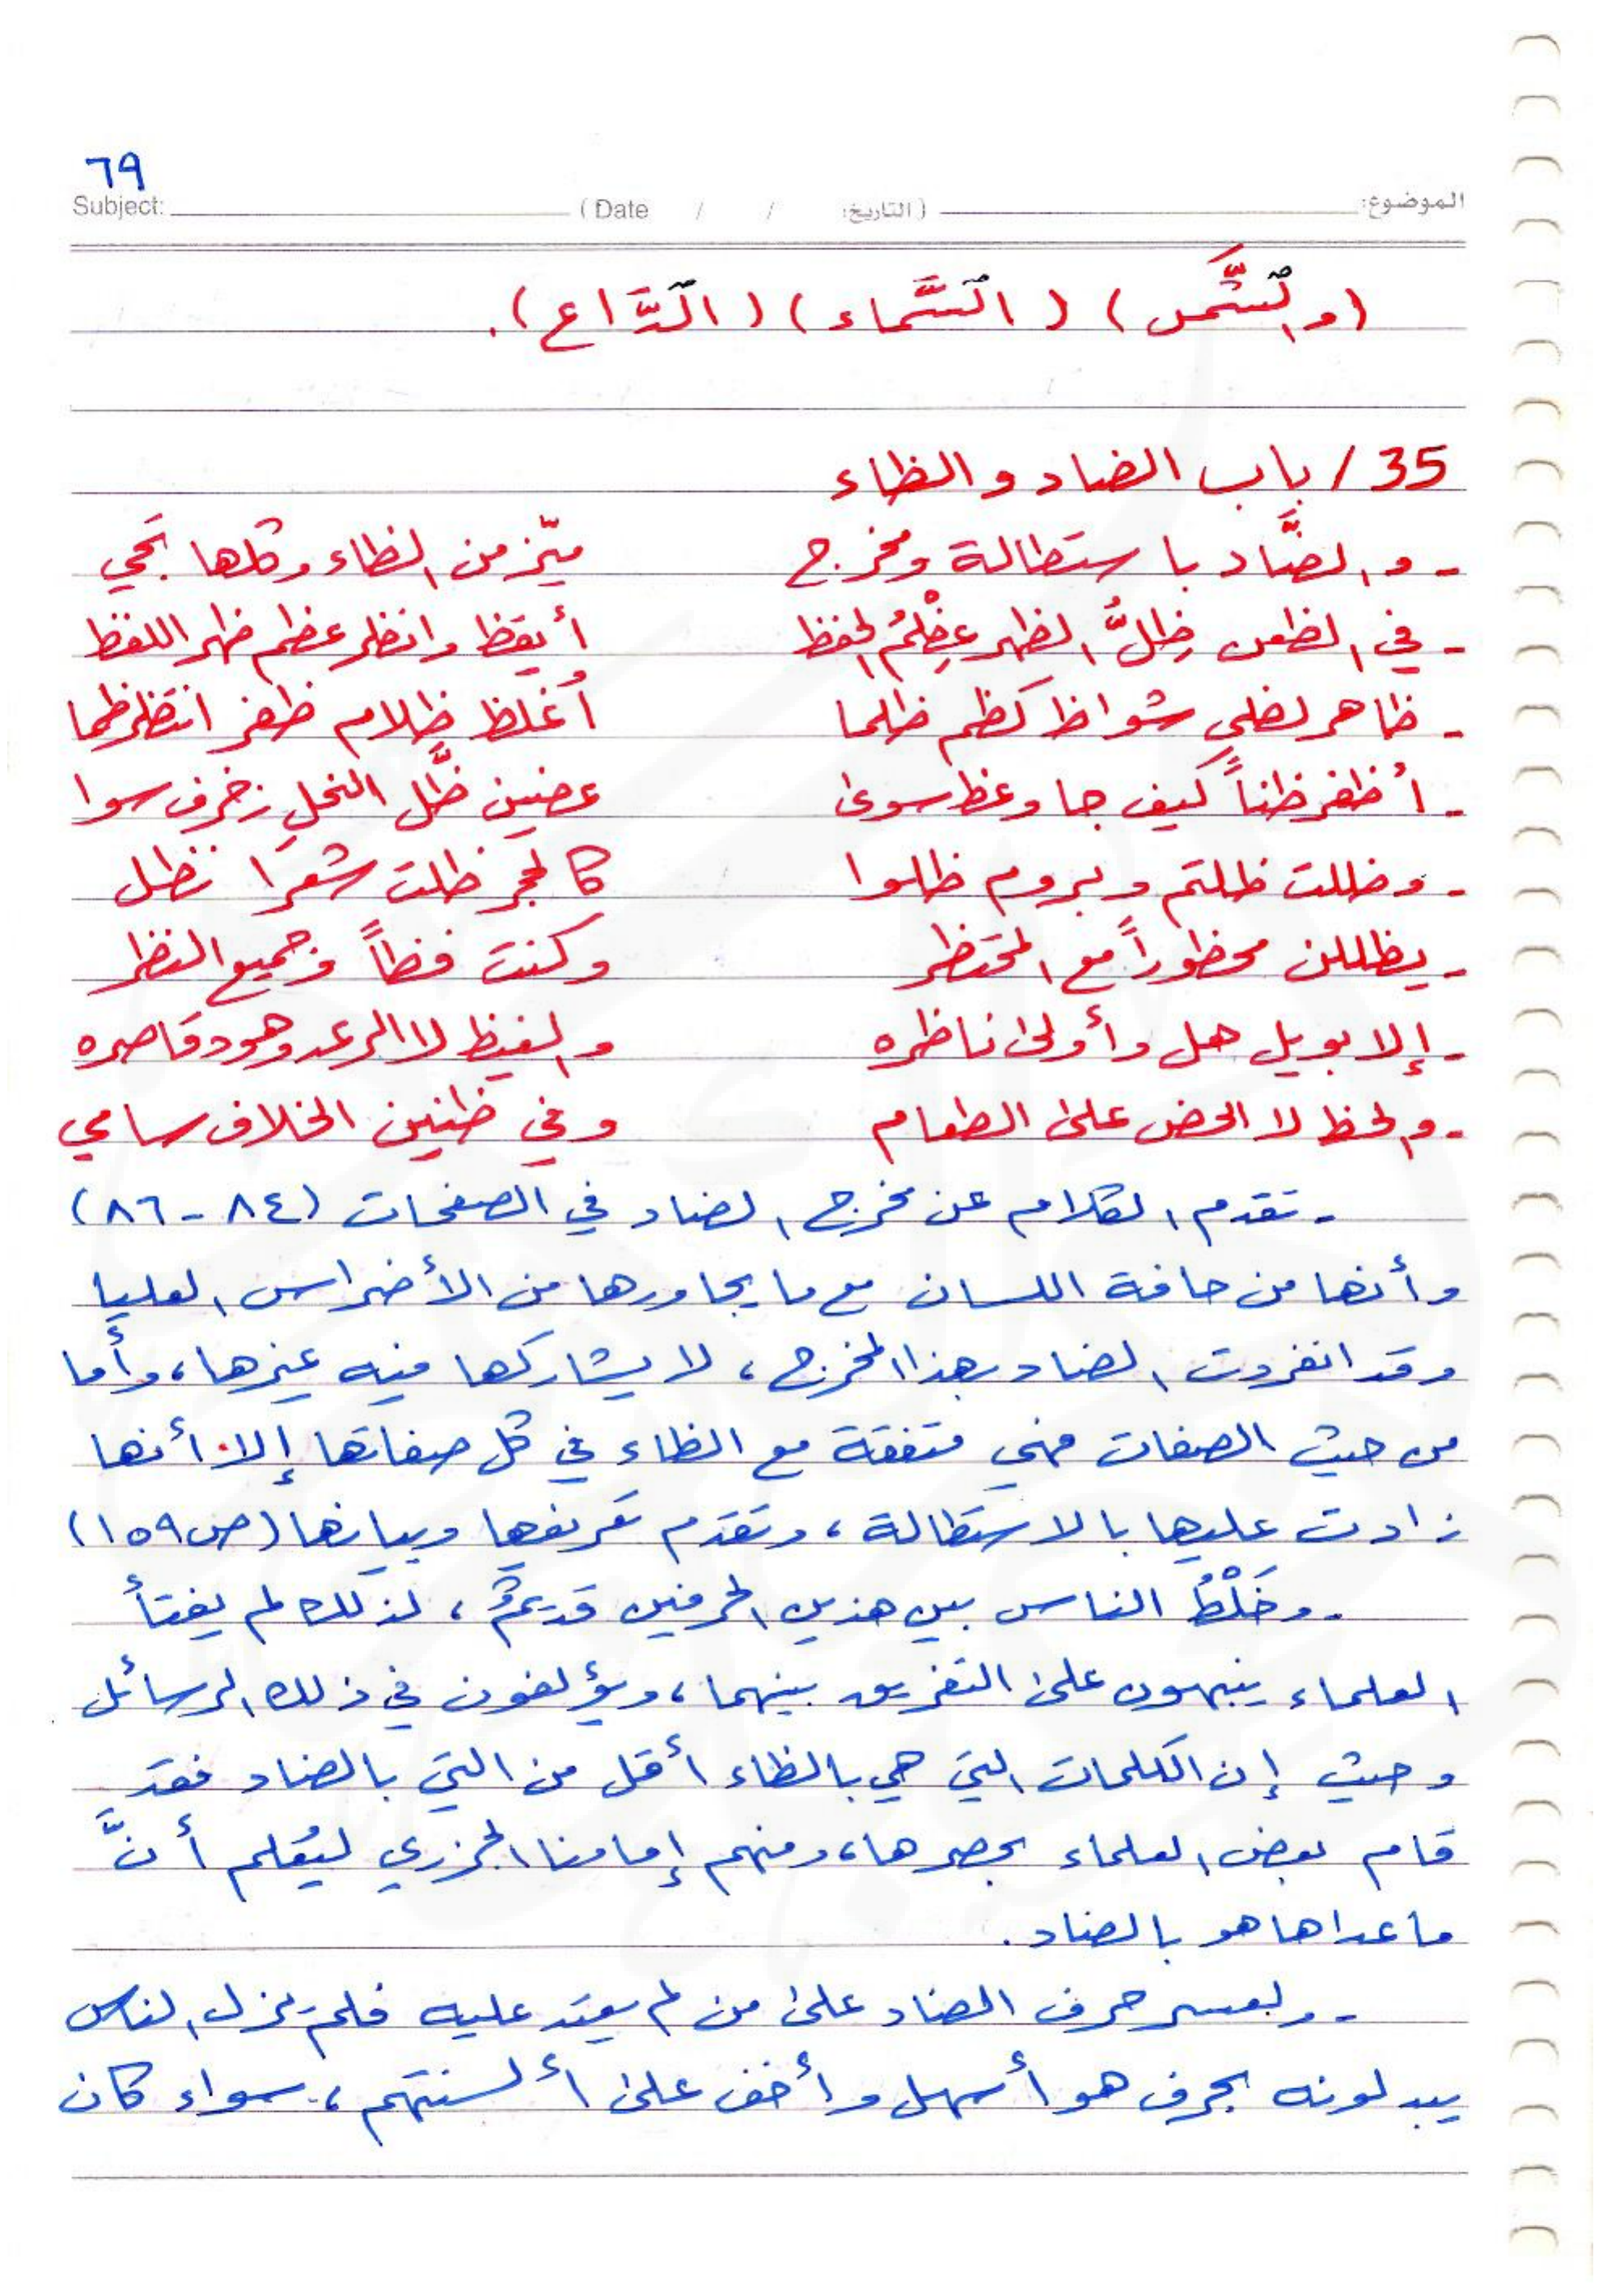 ٦٩
الموضوع: (التاريخ: / / Date) Subject:
(والشَّمس) (السَّماء) (الدَّاع).
35 / باب الضاد والظاء
- والضَّاد باستطالة ومخرج ميّز من الظاء وكلها تجي
- في الظعن ظِلُّ الظهر عظْمُ الحفظ أيقظ وانظر عظم ظهر اللفظ
- ظاهر لظى شواظ كظم ظلما أُغلظ ظلام ظفر انتظر ظما
- أظفر ظناً كيف جا وعظ سوى عضين ظَّل النحل زخرف سوا
- وظلت ظلتم وبروم ظلوا كالحجر ظلت شعرا نظل
- يظللن محظوراً مع المحتظر وكنت فظاً وجميع النظر
- إلا بويل هل وأولى ناظره والغيظ لا الرعد وهود قاصره
- والحظ لا الحض على الطعام وفي ظنين الخلاف سامي
- تقدم الكلام عن مخرج الضاد في الصفحات (٨٤ - ٨٦)
وأنها من حافة اللسان مع ما يجاورها من الأضراس العليا
وقد انفردت الضاد بهذا المخرج، لا يشاركها فيه غيرها، وأما
من حيث الصفات فهي متفقة مع الظاء في كل صفاتها إلا أنها
زادت عليها بالاستطالة، وتقدم تعريفها وبيانها (ص١٥٩)
- وخَلْطُ الناس بين هذين الحرفين قديمٌ، لذلك لم يفتأ
العلماء ينبهون على التفريق بينهما، ويؤلفون في ذلك الرسائل
وحيث إن الكلمات التي هي بالظاء أقل من التي بالضاد فقد
قام بعض العلماء بحصرها، ومنهم إمامنا الجزري ليُعلم أنَّ
ما عداها هو بالضاد.
- ولعسر حرف الضاد على من لم يعتد عليه فلم يزل الناس
يبدلونه بحرف هو أسهل وأخف على ألسنتهم، سواء كان